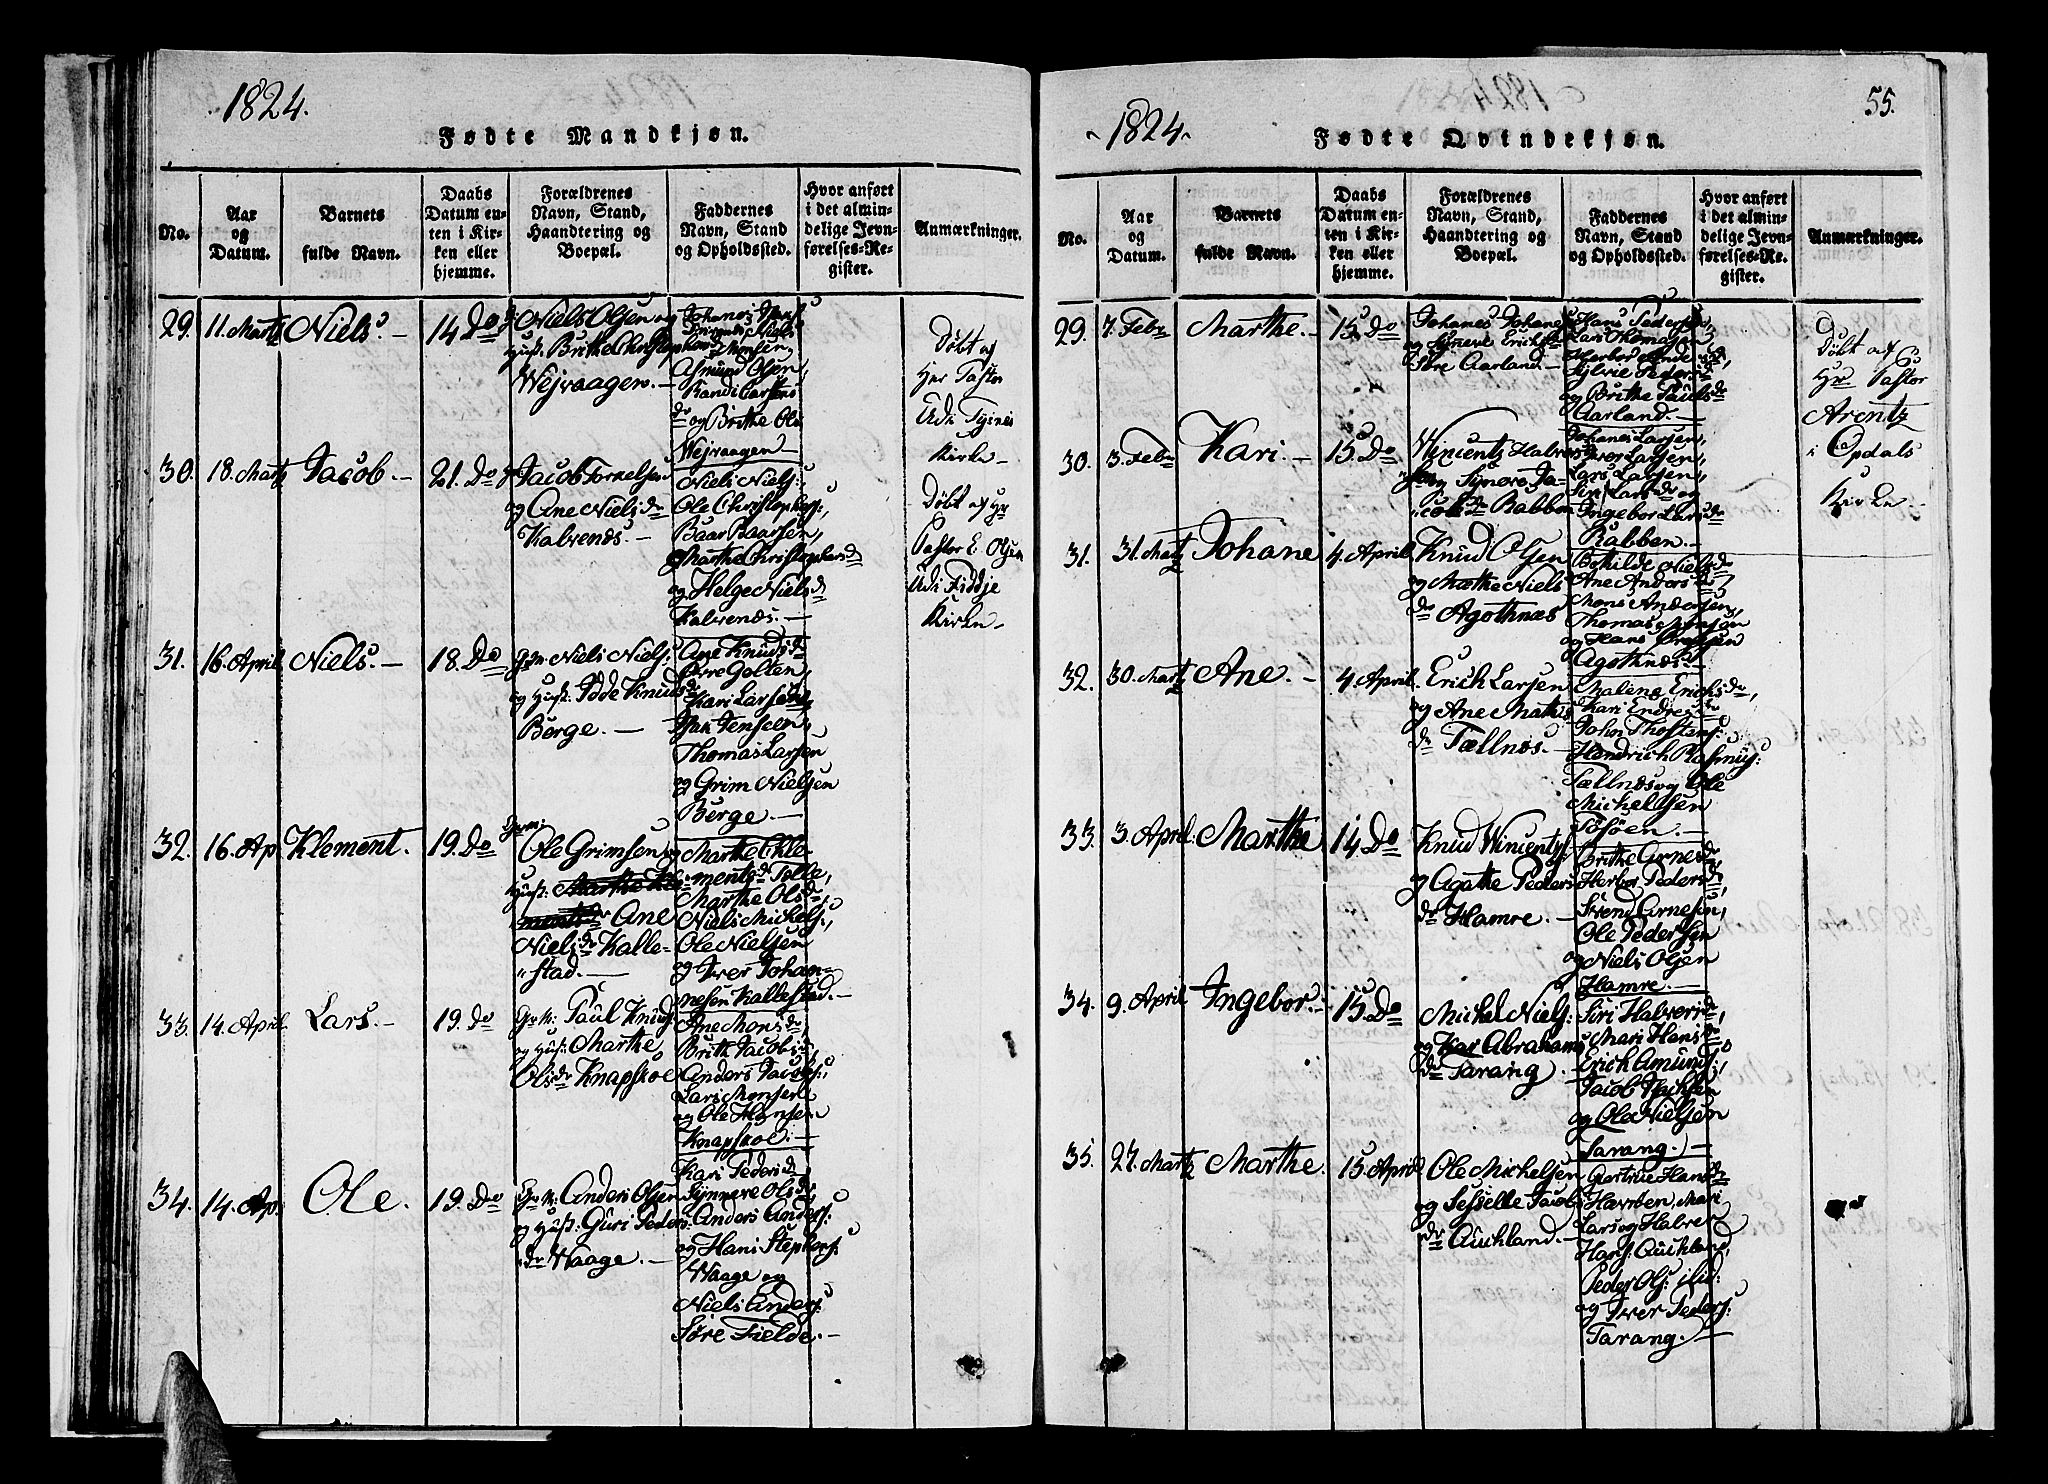 1824.
Fødte Mandkjøn.
No.
Aar
og
Datum.
Barnets
fulde Navn.
Daabs
Datum en-
ten i Kir-
ken eller
hjemme.
Forældrenes
Navn, Stand,
Haandtering og
Boepæl.
Faddernes
Navn, Stand
og Opholdssted.
Hvor anført
i det almin-
delige Jevn-
førelses-Re-
gister.
Anmærkninger.
29. 11. Martz Niels. — 14 Do
Niels Olsen og
Hust: Brithe Christopher
Wejvaagen. —
Asmund Olsen,
Randi Carstens
dr og Brithe Ols
Wejvaagen —
Døbt af
Hr Pastor
Ud i Tysnes
Kirke —
30. 18. Martz Jacob. — 21. Do
Jacob Torkelsen
og Ane Niels dr
Kalvenæs. —
Niels Niels:
Ole Christophers:,
Baar Baarsen,
Marthe Christophers dr
og Helge Niels dr
Kalvenæs. —
Døbt af Hr
Pastor E. Olsen
Ud i Fiddje
Kirke —
31. 16. April Niels. — 18. Do
Grm: Niels Niels:
og Hust: Odde Knuds dr
Børge. —
Ane Knuds dr
Golten,
Kari Lars dr
Isak Jensen,
Thomas Larsen
og Grim Nielsen
Børge. —
32. 16. Ap. Klement. 19. Do
Grm:
Ole Grimsen og
Hust: Marthe Kle-
ments dr Ane
Niels dr Kalle-
stad. —
Marthe Kle-
ments dr Tolle,
Marthe Ols dr
Niels Michels:,
Ole Nielsen
og Iver Johan-
nesen Kallestad. —
33. 14. April. Lars. — 19. Do
Grm: Paul Knuds:
og Hust: Marthe
Ols dr Knapskoe
Ane Mons dr
Brithe Jacobs dr,
Anders Jacobs:,
Lars Monsen
og Ole Hansen
Knapskoe. —
34. 14. Ap. Ole. 19. Do
Grm: Anders Olsen
og Hust: Guri Peders
dr Waage. —
Kari Peders dr
Synneve Ols dr
Anders Anders:
og Hans Stephens:
Waage og
Niels Anders:
Søre Fielde. —
1824.
55.
Fødte Qvindekjøn.
No.
Aar
og
Datum.
Barnets
fulde Navn.
Daabs
Datum en-
ten i Kir-
ken eller
hjemme.
Forældrenes
Navn, Stand,
Haandtering og
Boepæl.
Faddernes
Navn, Stand
og Opholdssted.
Hvor anført
i det almin-
delige Jevn-
førelses-Re-
gister.
Anmærkninger.
29. 7. Febr Marthe. — 15 Do
Johanes Johanes
og Syneve Erichs dr
Søre Aarland. —
Hans Pedersen,
Lars Thomasen
Sylvie Peders dr
og Brithe Pouls dr
Aarland. —
Døbt af
Hr Pastor
Arentz
i Opdals
Kirke —
30. 3. Febr Kari. — 15. Do
Wincentz Halvors:
og Synøve Ja-
cobs dr Rabben
Johanes Larsen,
Iver Larsen,
Lars Larsen,
Siri Lars dr og
Ingebor Lars dr
Rabben. —
31. 31. Martz Johane 4. April.
Knud Olsen
og Marthe Niels
dr Agothnæs
Bothilde Niels dr
Ane Anders dr
Mons Andersen,
Thomas Monsen
og Hans
Agothnæs. —
32. 30. Martz Ane. — 4. April.
Erich Larsen
og Ane Mathis
dr Tællnæs. —
Malene Erichs dr,
Kari Endres dr
John Thostens:
Hendrich Rasmus:
Tællnæs og Ole
Michelsen
Tøsøen. —
33. 3. April. Marthe 14. Do
Knud Wincents:
og Agathe Peders
dr Hamre. —
Brithe Arnes dr
Herbor Peders dr,
Svend Arnesen,
Ole Pedersen
og Niels Olsen
Hamre. —
34. 9. April. Ingebor. — 15. Do
Michel Niels:
og Kari Abrahams
dr Tarang. —
Siri Halvors dr,
Mari Hans dr
Erich Amunds:,
Jacob Michelsen
og Ole Nielsen
Tarang. —
35. 27. Martz Marthe. 15. April
Ole Michelsen
og Sesselle Jacobs
dr Auchland. —
Giertrue Hans dr
Hevrøen, Mari
Lars og Halvor
Hans: Auchland,
Peder Ols: ibid:
og Iver Peders:
Tarang. —